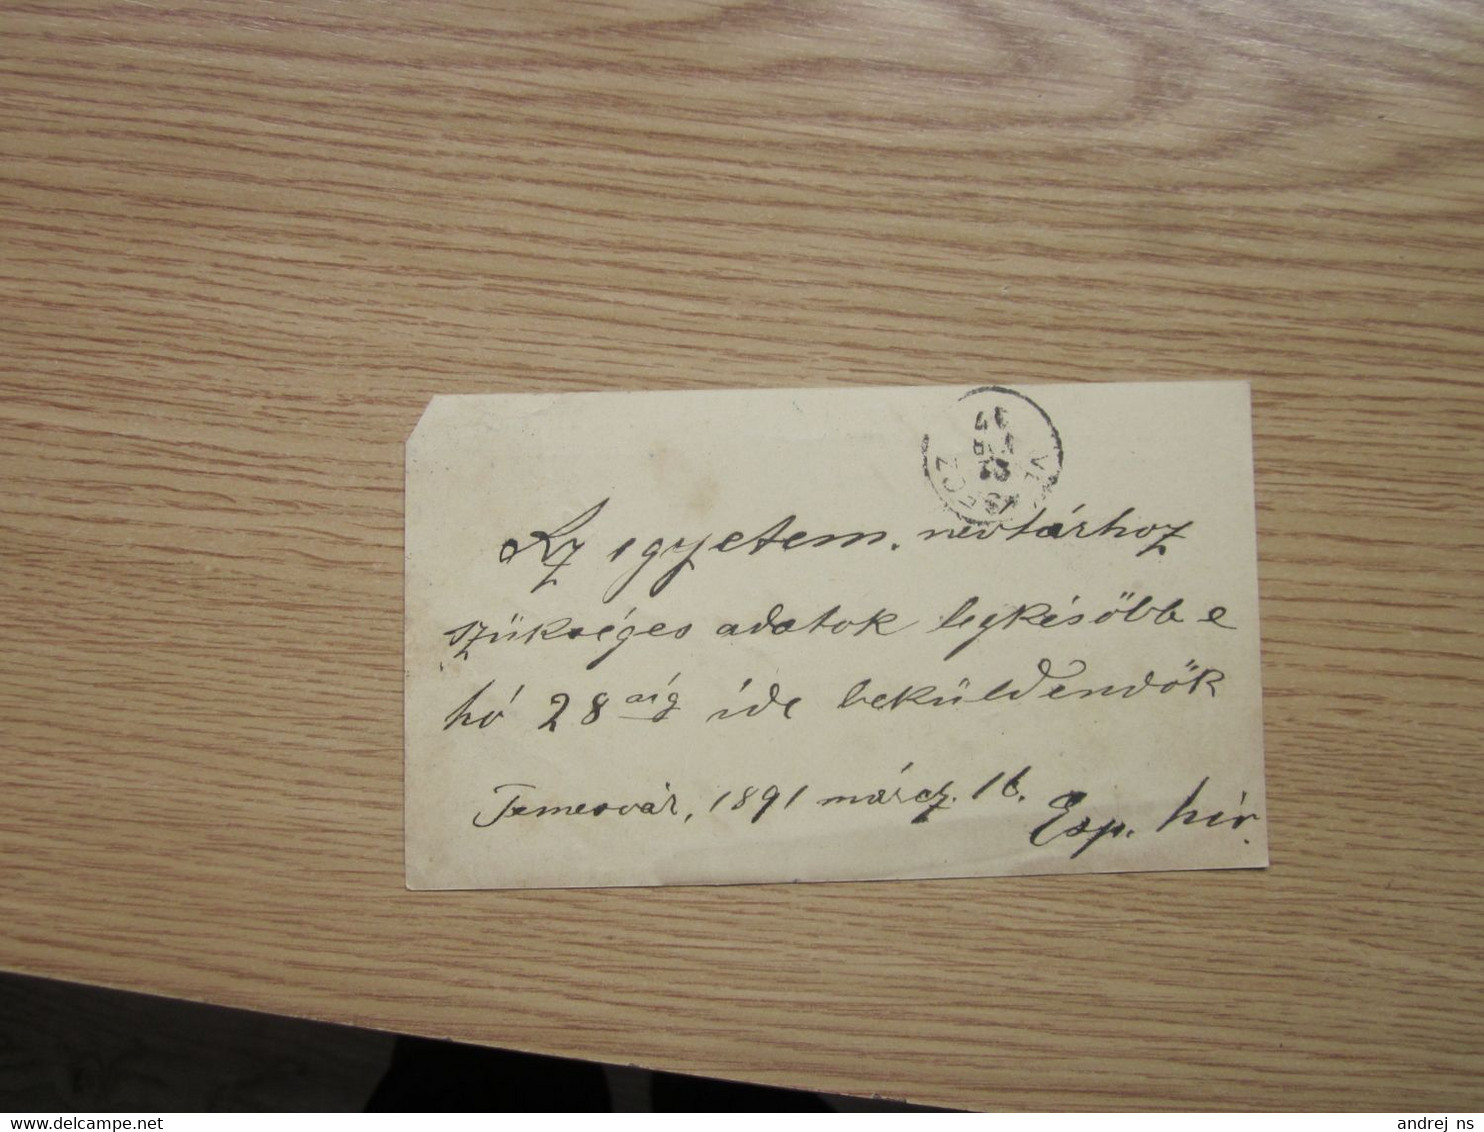 Az egyetem. névtárhoz
szükséges adatok legkésőbb e
hó 28 áig ide beküldendők
Temesvár, 1891 márcz. 16.
Esp. hiv.
andrej_ns